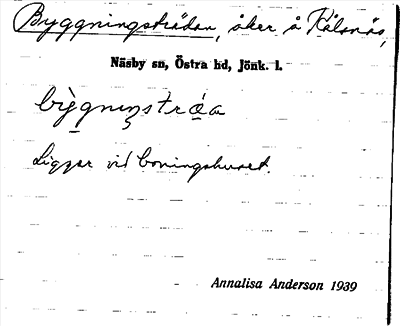 Byggningsträdan, åker å Kålsnäs,
Näsby sn, Östra hd, Jönk. l.
bỳgnɩnstráa
Ligger vid boningshuset.
Annalisa Anderson 1939